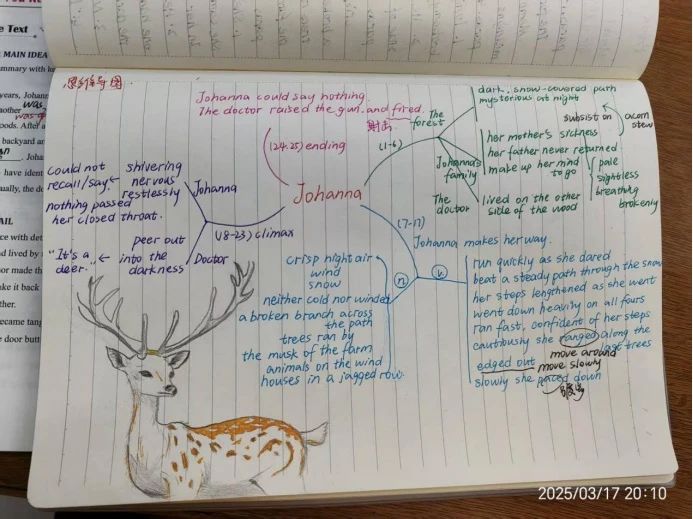 e Text
MAIN IDEA
mmary with
years, Johann
another was
oods. After a
backyard an
. Johann
have ident
ually, the do
AIL
ce with det
d lived by
or made th
ke it back
ther.
came tang
e door but
思维导图
Johanna could say nothing.
The doctor raised the gun and fired
射击
(24.25) ending
Johanna
(1-6)
The forest
dark, snow-covered path
mysterious at night
subsist on
acorn stew
Johanna's family
her mother's sickness
her father never returned
make up her mind to go
pale
sightless
breathing
brokenly
The doctor
lived on the other
side of the wood
(7-17)
Johanna makes her way.
n.
v.
run quickly as she dared
beat a steady path through the snow
her steps lengthened as she went
went down heavily on all fours
ran fast, confident of her steps
cautiously she ranged along the
last trees
edged out
move around
move slowly
slowly she paced down
踱步
crisp night air
wind
snow
neither cold nor winded
a broken branch across
the path
trees ran by
the musk of the farm
animals on the wind
houses in a jagged row.
(18-23) climax
Johanna
shivering
nervous
restlessly
could not
recall/say
nothing passed
her closed throat.
Doctor
peer out
into the
darkness
"It's a
deer."
2025/03/17 20:10